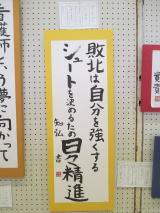 敗北は自分を強くする
シュートを決めるため
日々精進
知弘 書
看護師という夢に向かって